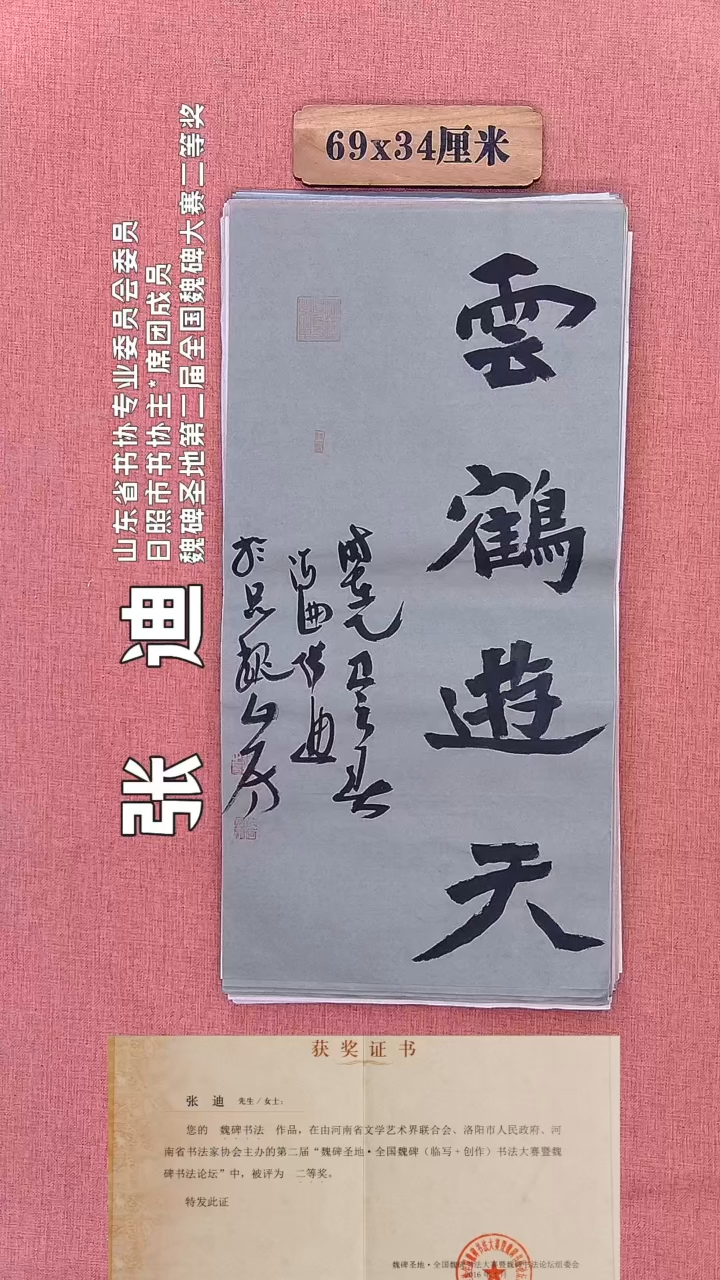 69x34厘米
雲鶴遊天
於呂魏山房
张迪
山东省书协专业委员会委员
日照市书协主*席团成员
魏碑圣地第二届全国魏碑大赛二等奖
获奖证书
张 迪 先生/女士:
您的 魏碑书法 作品，在由河南省文学艺术界联合会、洛阳市人民政府、河
南省书法家协会主办的第二届“魏碑圣地·全国魏碑（临写+创作）书法大赛暨魏
碑书法论坛”中，被评为 二等奖。
特发此证
魏碑圣地·全国魏碑书法大赛暨魏碑书法论坛组委会